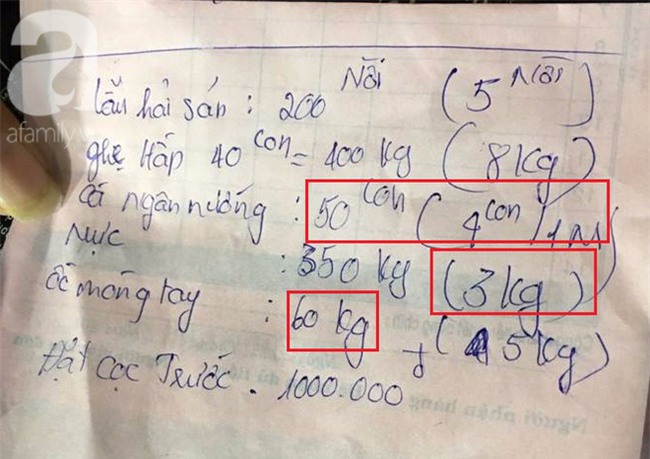 a
afamily.vn
Lẩu hải sản : 200 Nồi (5 Nồi)
ghẹ Hấp 40 con = 400 kg (8 kg)
Cá ngân nướng : 50 con (4 con / 1
Mực : 350 kg (3 kg)
ốc móng tay : 60 kg (5 kg)
Đặt cọc Trước . 1000.000
Người nhận hàng